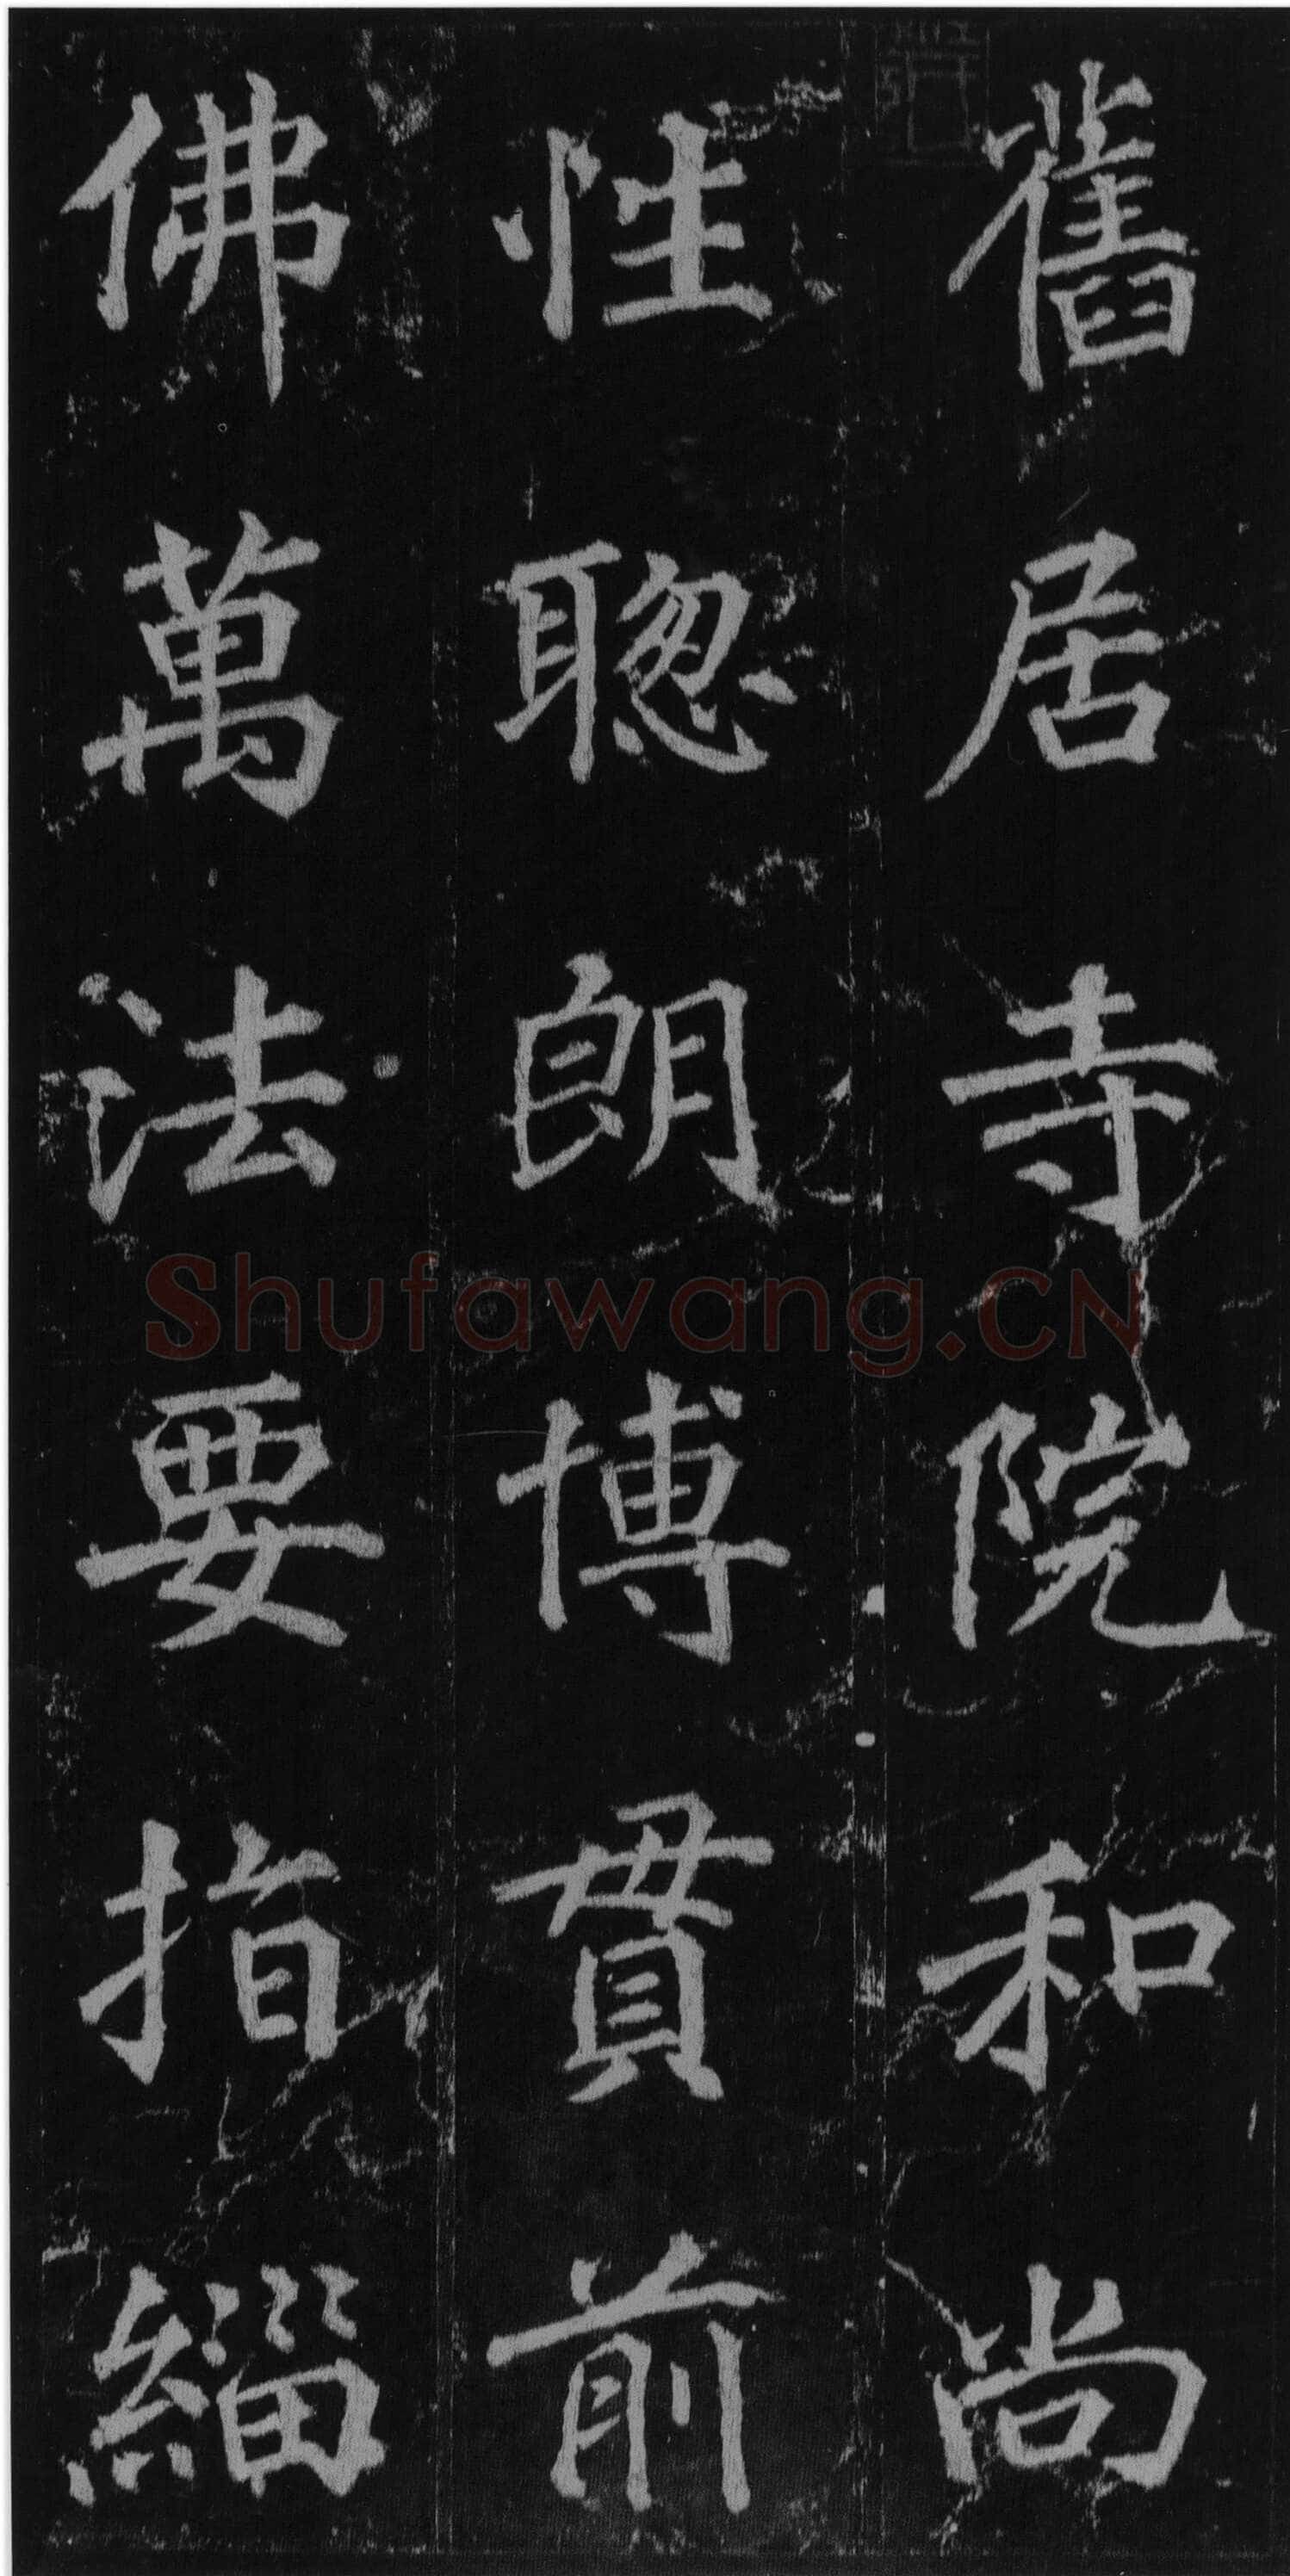 舊居寺院和尚
性聦朗博貫前
佛萬法要指緇
Shufawang.CN